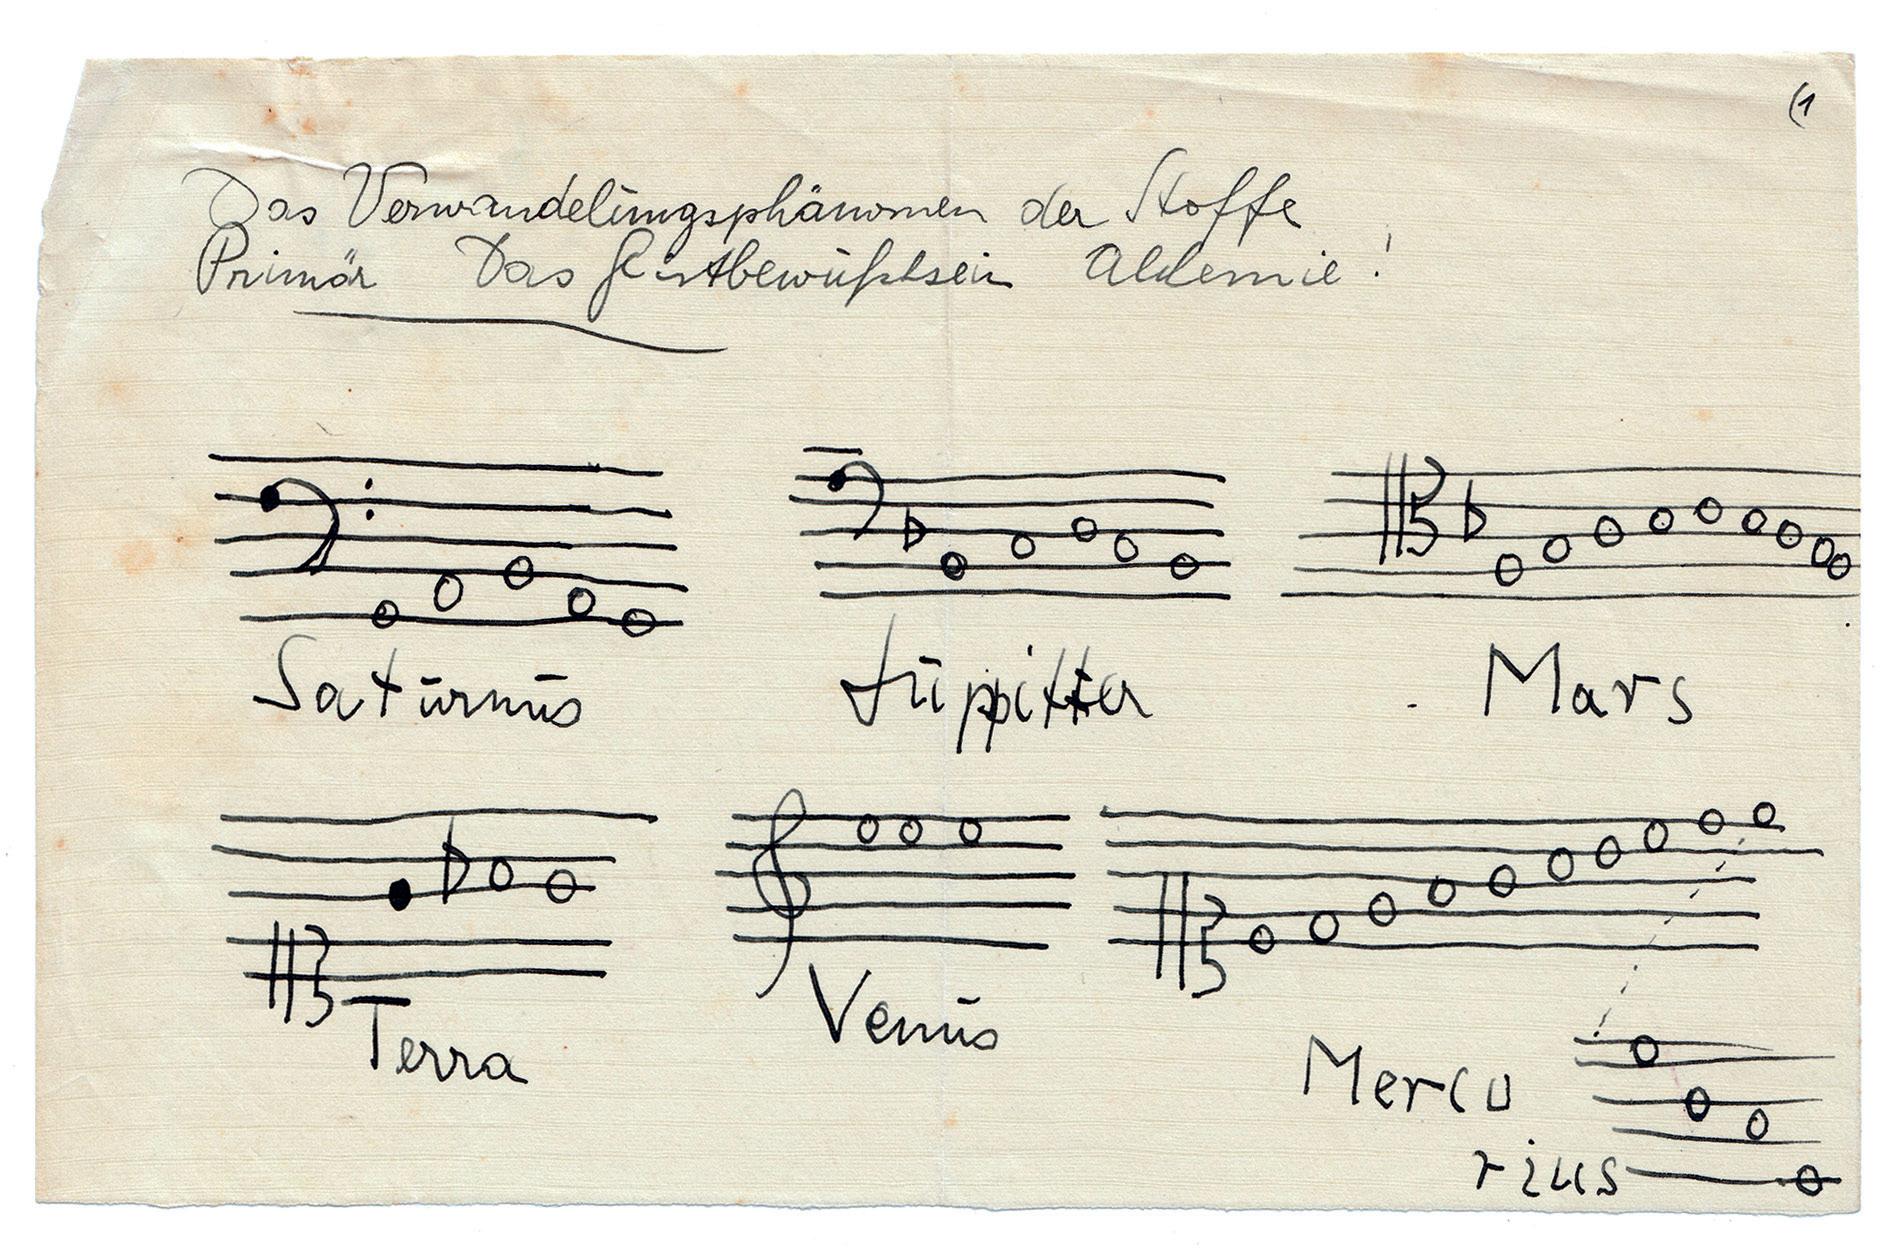 (1
Das Verwandelungsphänomen der Stoffe
Primär Das Alchemie!
Saturnus Juppitter Mars
Terra Venus Mercu
rius